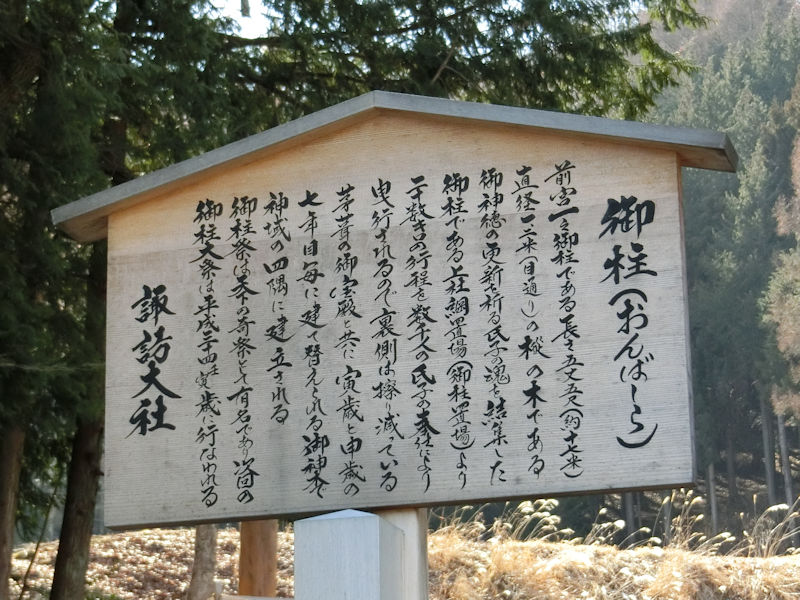 御柱(おんばしら)
前宮一之御柱である長さ五丈五尺(約十七米)
直経一二米(目通り)の樅の木である
御神徳の更新を祈る氏子の魂を結集した
御柱である上社綱置場(御柱置場)より
二十数粁の行程を数千人の氏子の奉仕により
曳行されるので裏側は擦り減っている
茅葺の御宝殿と共に寅歳と申歳の
七年目毎に建て替えられる御神木で
神域の四隅に建立される
御柱祭は天下の奇祭として有名であり次回の
御柱大祭は平成三十四年寅歳に行なわれる
諏訪大社